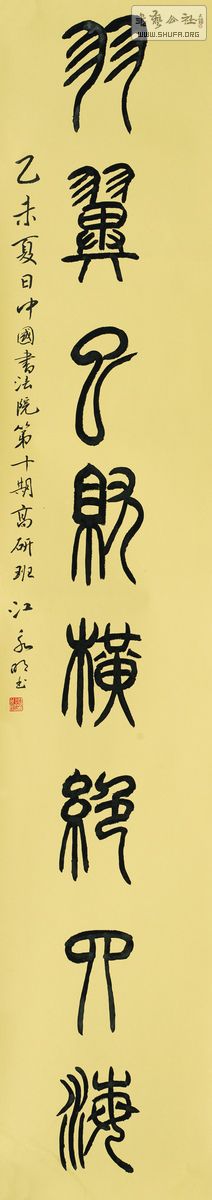 羽翼已就橫絕四海
乙未夏日中國書法院第十期高研班 江永明书
书艺公社
WWW.SHUFA.ORG